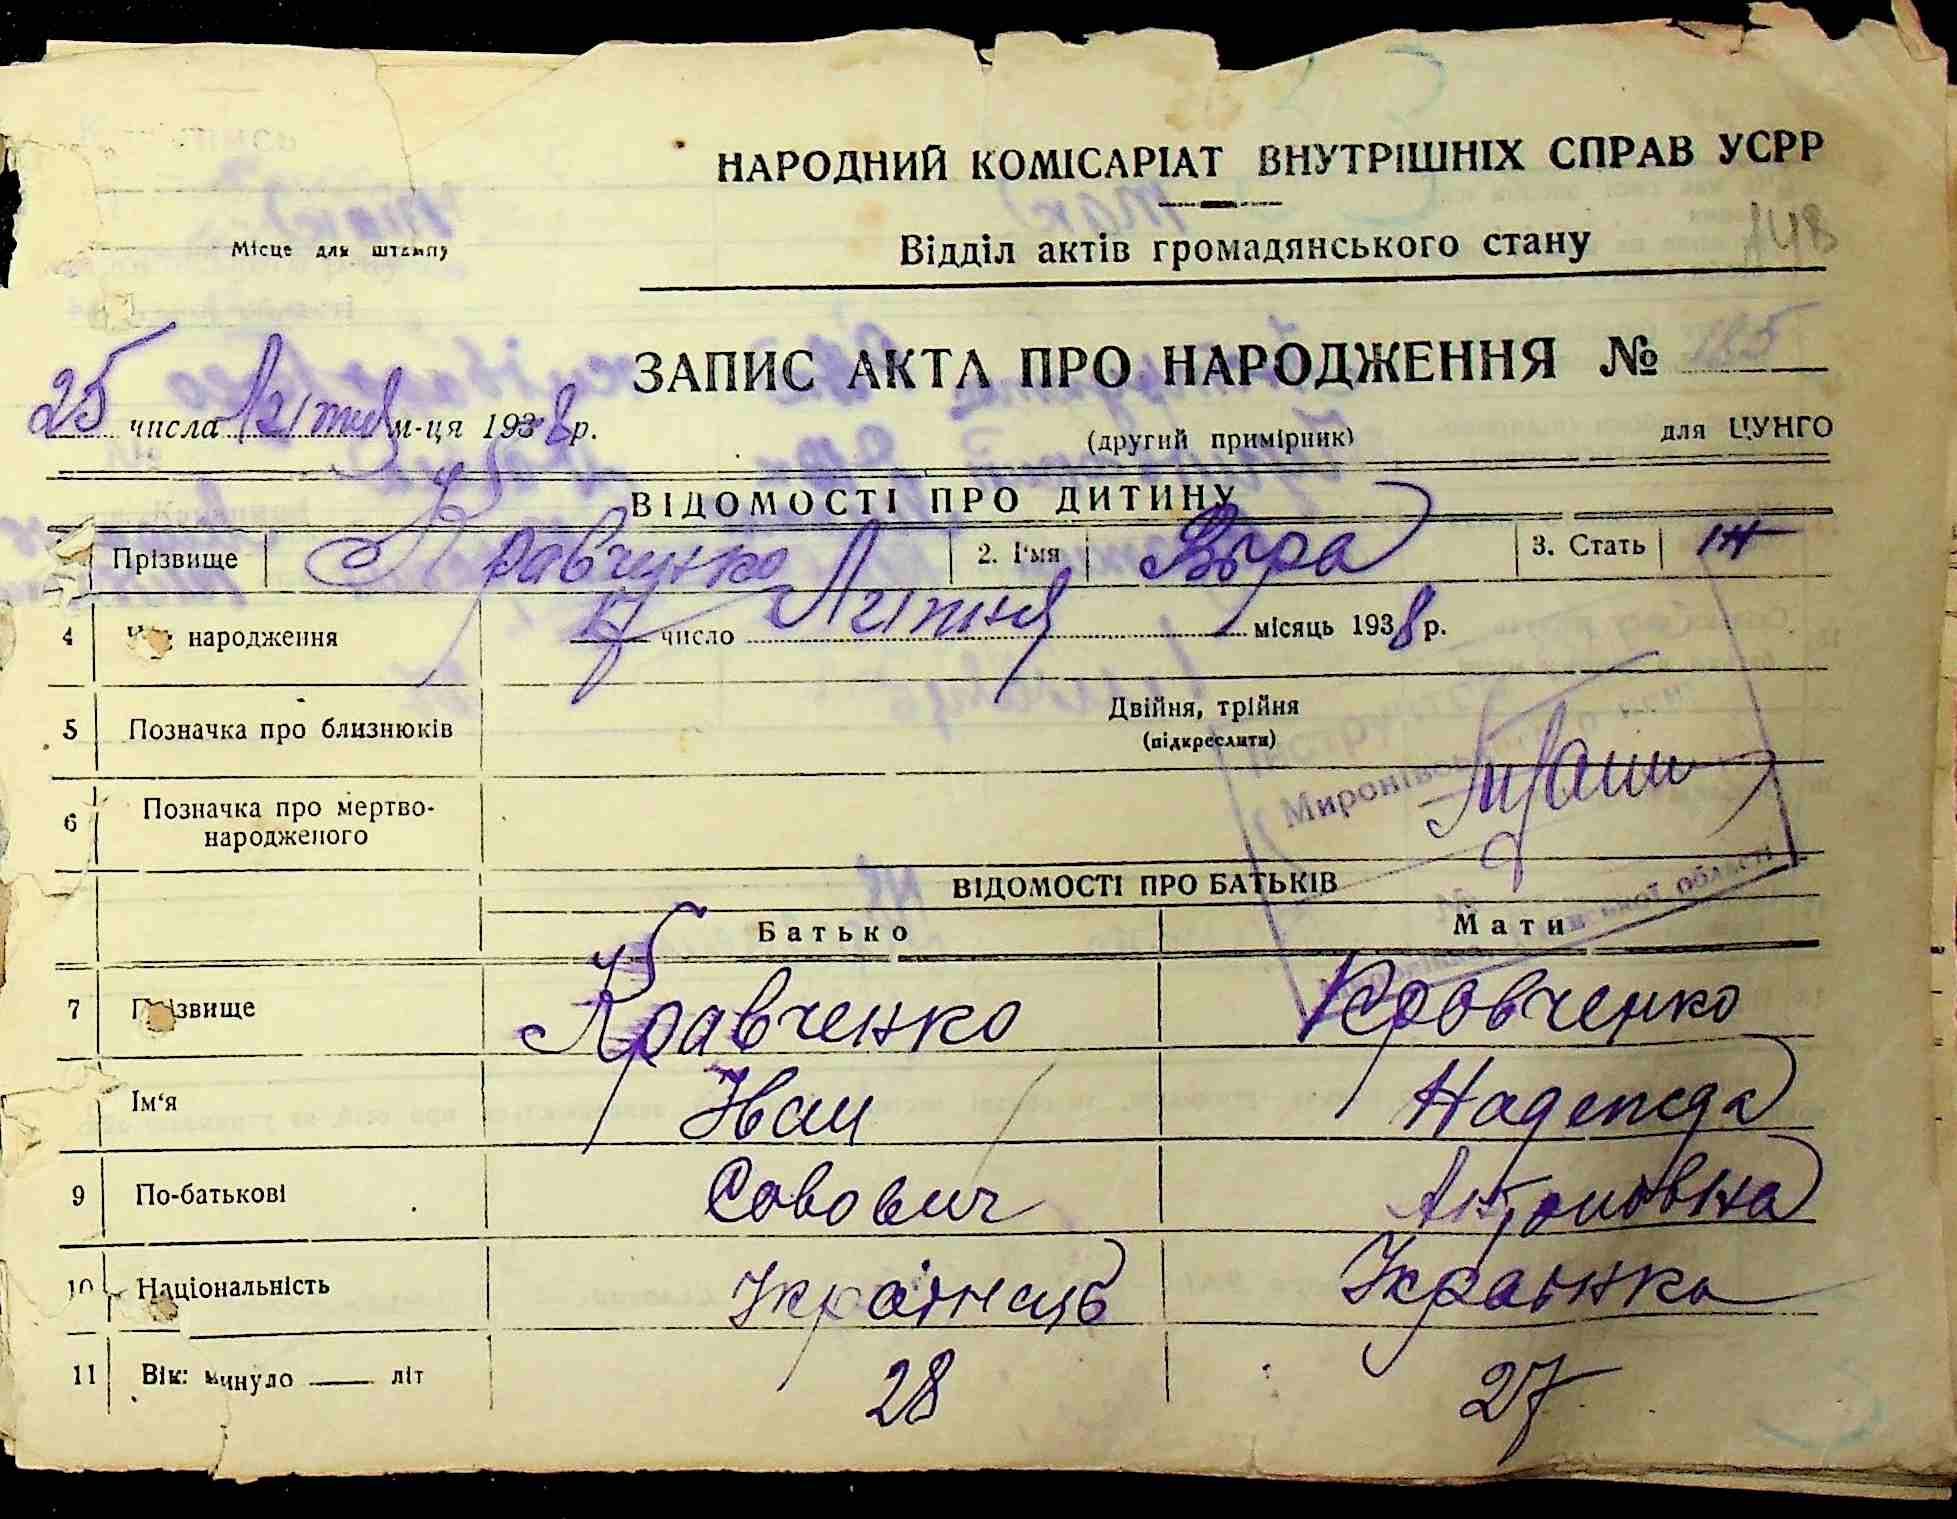 НАРОДНИЙ КОМІСАРІАТ ВНУТРІШНІХ СПРАВ УСРР
Місце для штампу
Відділ актів громадянського стану
148
ЗАПИС АКТА ПРО НАРОДЖЕННЯ № 185
25 числа Літня м-ця 1938 р.
(другий примірник) для ЦУНГО
ВІДОМОСТІ ПРО ДИТИНУ
Прізвище Кравченко 2. І'мя Віра 3. Стать Ж
4 народження 17 число Літня місяць 1938 р.
5 Позначка про близнюків Двійня, трійня
(підкреслити)
Миронівс
6 Позначка про мертво-
народженого
ВІДОМОСТІ ПРО БАТЬКІВ
Батько Мати
7 Прізвище Кравченко Кровченко
Ім'я Іван Надежда
9 По-батькові Совович Антоновна
10 Національність Українець Українка
11 Вік: минуло літ 28 27